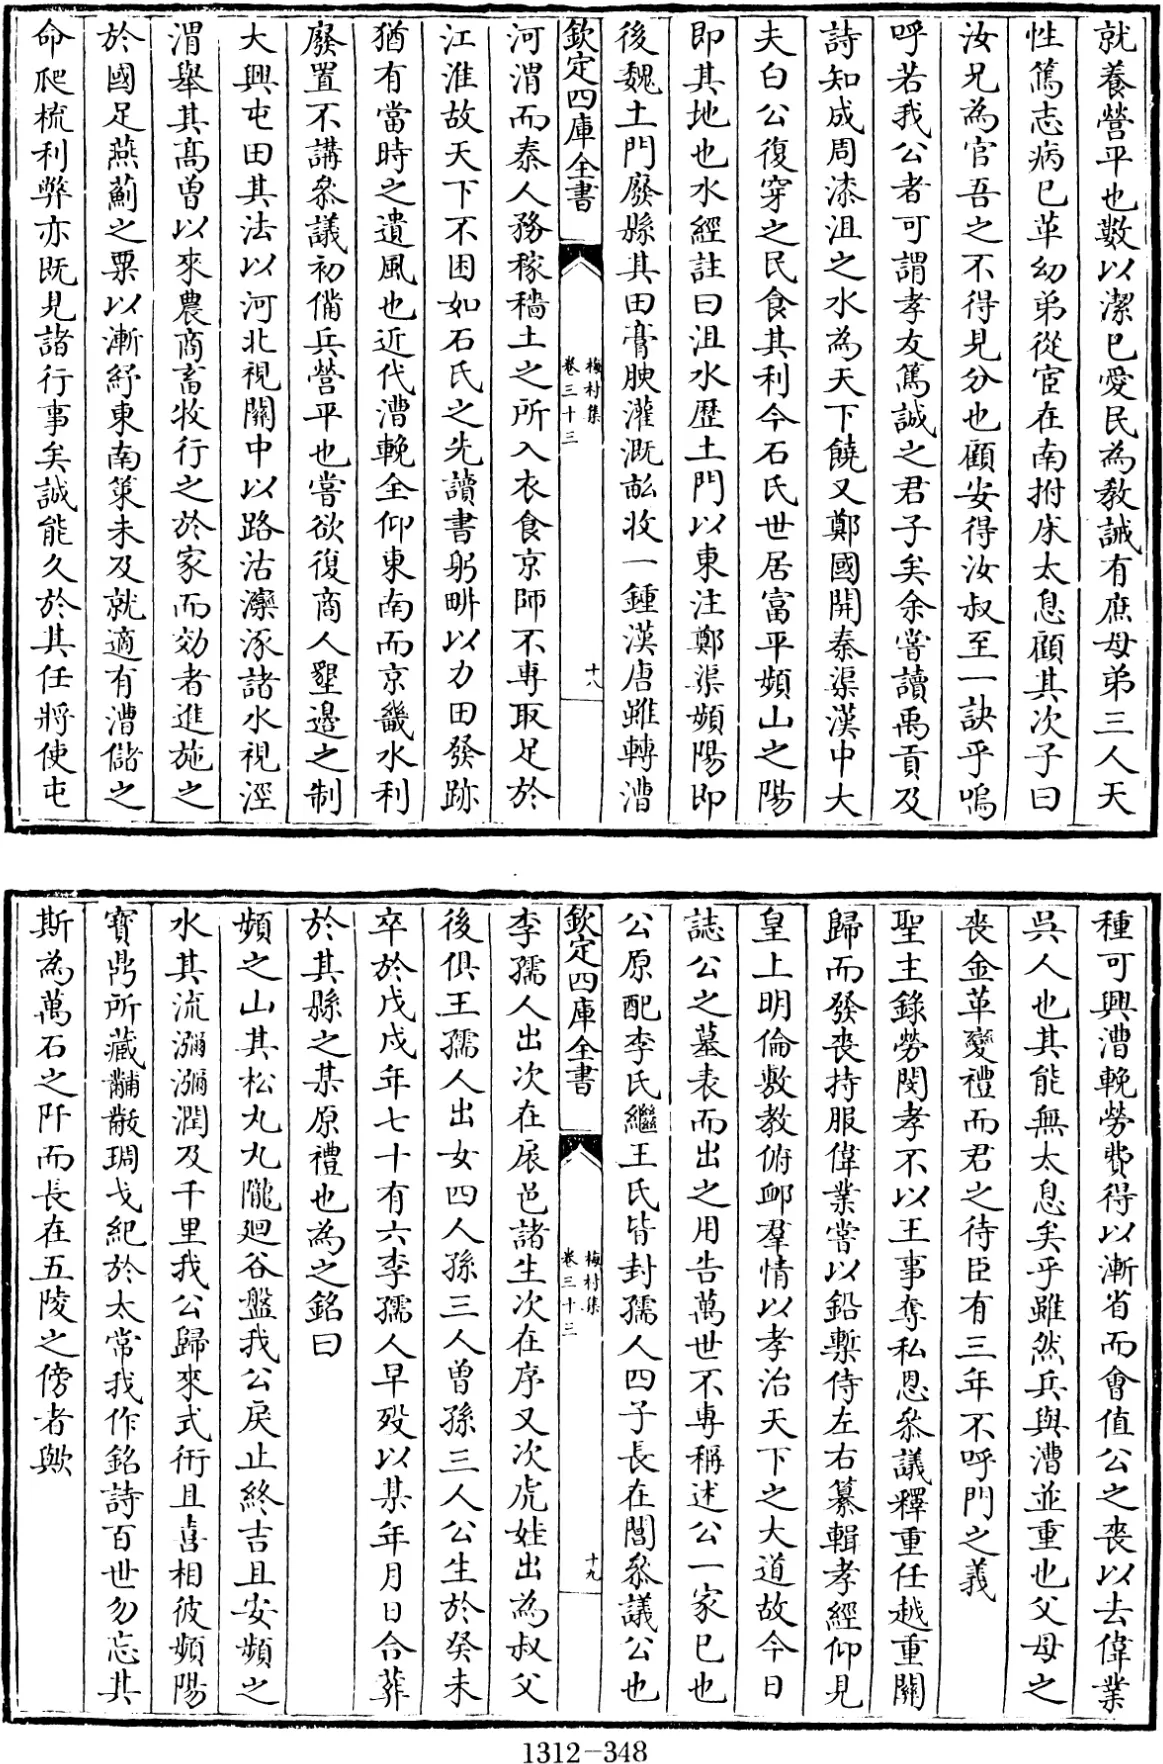 就養營平也數以潔己愛民為教誡有庶母弟三人天
性篤志病已革幼弟從宦在南拊床太息顧其次子曰
汝兄為官吾之不得見分也顧安得汝叔至一訣乎嗚
呼若我公者可謂孝友篤誠之君子矣余嘗讀禹貢及
詩知成周漆沮之水為天下饒又鄭國開秦渠漢中大
夫白公復穿之民食其利今石氏世居富平頻山之陽
即其地也水經註曰沮水歷土門以東注鄭渠頻陽即
後魏土門廢縣其田膏腴灌溉畝收一鍾漢唐雖轉漕
欽定四庫全書
梅村集
卷三十三
十八
河渭而秦人務稼穡土之所入衣食京師不専取足於
江淮故天下不困如石氏之先讀書躬畊以力田發跡
猶有當時之遺風也近代漕輓全仰東南而京畿水利
廢置不講叅議初備兵營平也嘗欲復商人墾邊之制
大興屯田其法以河北視關中以路沽灤涿諸水視涇
渭舉其髙曽以來農商畜牧行之於家而効者進施之
於國足燕薊之粟以漸紓東南策未及就適有漕儲之
命爬梳利弊亦既見諸行事矣誠能久於其任將使屯
種可興漕輓勞費得以漸省而會值公之喪以去偉業
吳人也其能無太息矣乎雖然兵與漕並重也父母之
喪金革變禮而君之待臣有三年不呼門之義
聖主錄勞閔孝不以王事奪私恩叅議釋重任越重關
歸而發喪持服偉業嘗以鉛槧侍左右纂輯孝經仰見
皇上明倫敷教俯卹羣情以孝治天下之大道故今日
誌公之墓表而出之用告萬世不専稱述公一家已也
公原配李氏繼王氏皆封孺人四子長在閭叅議公也
欽定四庫全書
梅村集
卷三十三
十九
李孺人出次在扆邑諸生次在序又次虎娃出為叔父
後俱王孺人出女四人孫三人曽孫三人公生於癸未
卒於戊戌年七十有六李孺人早殁以某年月日合葬
於其縣之某原禮也為之銘曰
頻之山其松丸丸隴廻谷盤我公戾止終吉且安頻之
水其流瀰瀰潤及千里我公歸來式衎且喜相彼頻陽
寳鼎所藏黼黻琱戈紀於太常我作銘詩百世勿忘其
斯為萬石之阡而長在五陵之傍者歟
1312-348